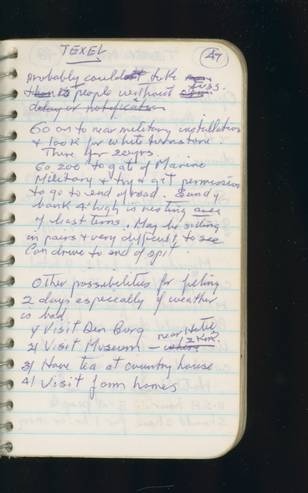 TEXEL
47
Probably could take
people without fuss.
delay or notification
Go on to near military installation
& look for white turnstone.
There for 2 years.
Go 200 to gate of Marine
Military & try & get permission
to go to end of road. Sandy
bank 4' high is nesting area
of least terns. May be sitting
in pairs & very difficult to see
Can drive to end of spit.
Other possibilities for filling
2 days especially if weather
is bad
1/ Visit Den Borg
2/ Visit Museum — near Hotel 1/2 Km?
3/ Have tea at country house
4/ Visit farm homes